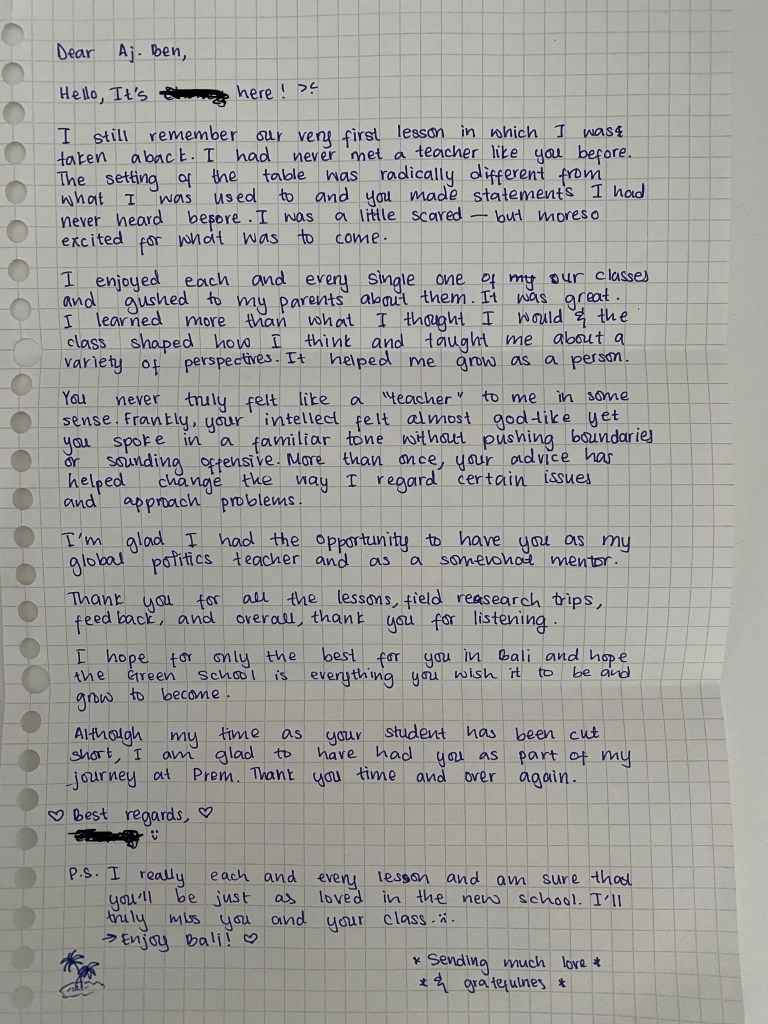 Dear Aj. Ben,
Hello, It's here! ><
I still remember our very first lesson in which I was
taken aback. I had never met a teacher like you before.
The setting of the table was radically different from
what I was used to and you made statements I had
never heard before. I was a little scared — but moreso
excited for what was to come.
I enjoyed each and every single one of my our classes
and gushed to my parents about them. It was great.
I learned more than what I thought I would & the
class shaped how I think and taught me about a
variety of perspectives. It helped me grow as a person.
You never truly felt like a "teacher" to me in some
sense. Frankly, your intellect felt almost god-like yet
you spoke in a familiar tone without pushing boundaries
or sounding offensive. More than once, your advice has
helped change the way I regard certain issues
and approach problems.
I'm glad I had the opportunity to have you as my
global politics teacher and as a somewhat mentor.
Thank you for all the lessons, field research trips,
feedback, and overall, thank you for listening.
I hope for only the best for you in Bali and hope
the Green School is everything you wish it to be and
grow to become.
Although my time as your student has been cut
short, I am glad to have had you as part of my
journey at Prem. Thank you time and over again.
♡ Best regards, ♡
:)
P.S. I really each and every lesson and am sure that
you'll be just as loved in the new school. I'll
truly miss you and your class.
→ Enjoy Bali! ♡
* Sending much love *
* & gratefulnes *